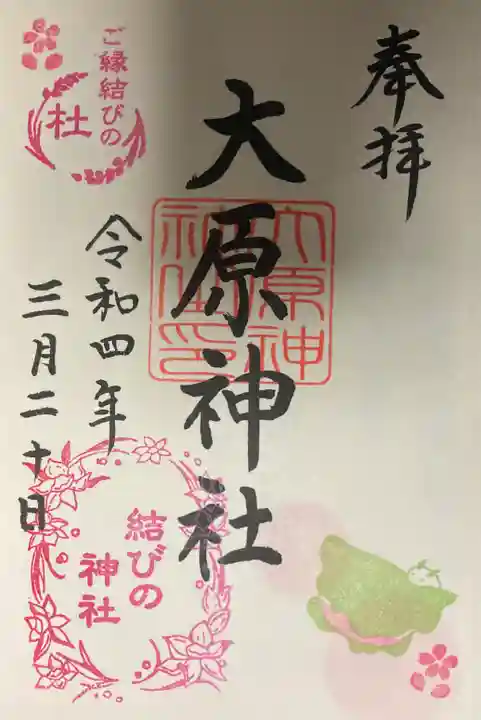 奉拝
大原神社
大原神社御印
令和四年
三月二十日
ご縁結びの
杜
結びの
神社